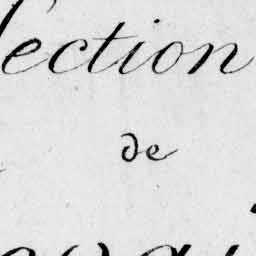 lection
de